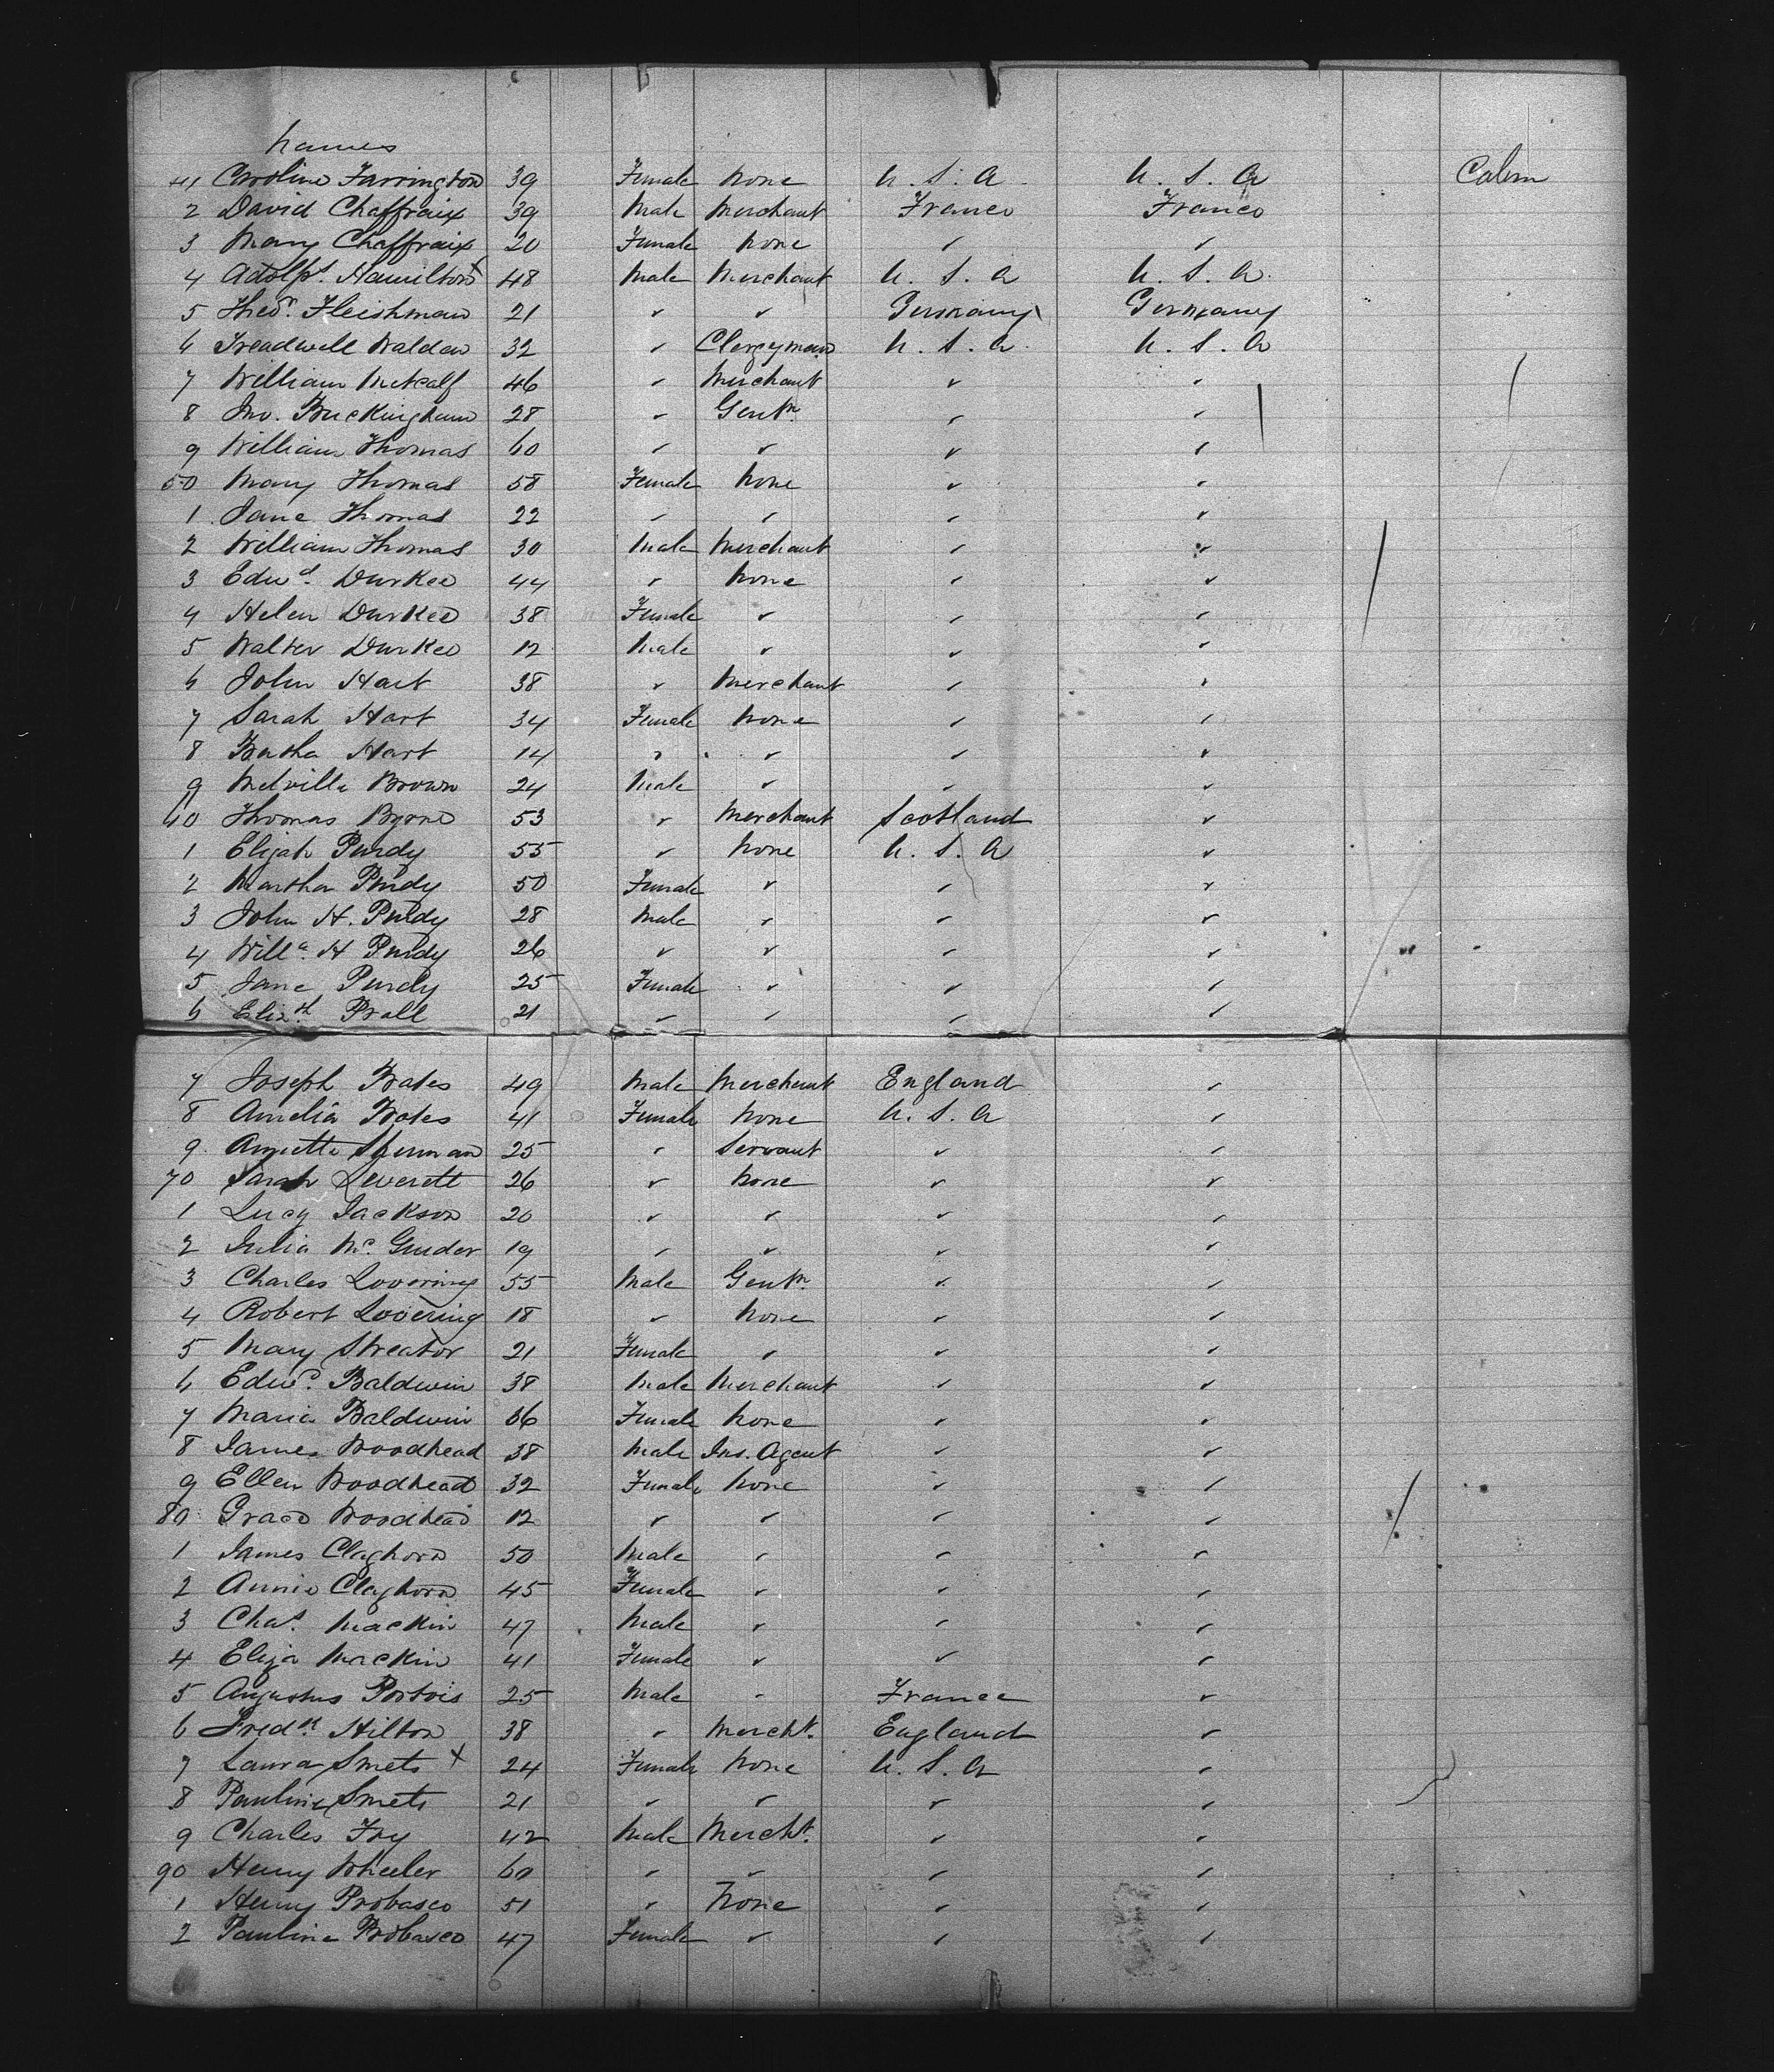 Names
41 Caroline Farrington 39 Female None U. S. A. U. S. A Cabin
2 David Chaffraix 39 Male Merchant France France
3 Mary Chaffraix 20 Female None ✓ ✓
4 Adolps. Hamilton 48 Male Merchant U. S. A U. S. A.
5 Thed. Fleishman 21 ✓ ✓ Germany Germany
6 Treadwell Walden 32 ✓ Clergyman U. S. A. U. S. A
7 William Metcalf 46 ✓ Merchant ✓ ✓
8 Jno. Buckingham 28 ✓ Gentn. ✓ ✓
9 William Thomas 60 ✓ ✓ ✓ ✓
50 Mary Thomas 58 Female None ✓ ✓
1 Jane Thomas 22 ✓ ✓ ✓ ✓
2 William Thomas 30 Male Merchant ✓ ✓
3 Edwd. Durkee 44 ✓ None ✓ ✓
4 Helen Durkee 38 Female ✓ ✓ ✓
5 Walter Durkee 12 Male ✓ ✓ ✓
6 John Hart 38 ✓ Merchant ✓ ✓
7 Sarah Hart 34 Female None ✓ ✓
8 Bertha Hart 14 ✓ ✓ ✓ ✓
9 Melville Brown 24 Male ✓ ✓ ✓
60 Thomas Byrne 53 ✓ Merchant Scotland ✓
1 Elijah Purdy 55 ✓ None U. S. A ✓
2 Martha Purdy 50 Female ✓ ✓ ✓
3 John H. Purdy 28 Male ✓ ✓ ✓
4 Willm. H Purdy 26 ✓ ✓ ✓ ✓
5 Jane Purdy 25 Female ✓ ✓ ✓
6 Elizth. Prall 21 ✓ ✓ ✓ ✓
7 Joseph Bates 49 Male Merchant England ✓
8 Amelia Bates 41 Female None U. S. A ✓
9 Annette Sherman 25 ✓ Servant ✓ ✓
70 Sarah Leverett 26 ✓ None ✓ ✓
1 Lucy Jackson 20 ✓ ✓ ✓ ✓
2 Julia Mc. Gruder 19 ✓ ✓ ✓ ✓
3 Charles Lovering 55 Male Gentn. ✓ ✓
4 Robert Lovering 18 ✓ None ✓ ✓
5 Mary Streator 21 Female ✓ ✓ ✓
6 Edwd. Baldwin 38 Male Merchant ✓ ✓
7 Maria Baldwin 36 Female None ✓ ✓
8 James Woodhead 38 Male Ins. Agent ✓ ✓
9 Ellen Woodhead 32 Female None ✓ ✓
80 Grace Woodhead 12 ✓ ✓ ✓ ✓
1 James Claghorn 50 Male ✓ ✓ ✓
2 Annie Claghorn 45 Female ✓ ✓ ✓
3 Chas. Mackin 47 Male ✓ ✓ ✓
4 Eliza Mackin 41 Female ✓ ✓ ✓
5 Augustus Portois 25 Male ✓ France ✓
6 Fredk. Hilton 38 ✓ Mercht. England ✓
7 Laura Smets x 24 Female None U. S. A ✓
8 Pauline Smets 21 ✓ ✓ ✓ ✓
9 Charles Fry 42 Male Mercht. ✓ ✓
90 Henry Wheeler 60 ✓ ✓ ✓ ✓
1 Henry Probasco 51 ✓ None ✓ ✓
2 Pauline Probasco 47 Female ✓ ✓ ✓